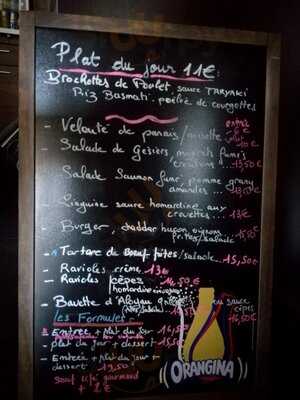 Plat du jour 11€
Brochettes de Poulet sauce TARYAKI
Riz Basmati poêlée de courgettes
- Velouté de panais/noisette
- Salade de Gésiers, magrets fumés
croutons 13,50€
- Salade Saumon fumé, pomme granny
amandes ... 13,50€
- Linguine sauce homardine aux
crevettes... 13€
- Burger, cheddar bacon oignons
frites/salade 15,50€
- Tartare de Boeuf frites/salade.. 15,50€
- Ravioles crème 13€
- Ravioles cèpes 14,50€
homardine
- Bavette d'Aloyau sauce
cèpes
16,50€
Les Formules
- Entrée + plat du jour 14,50
- plat du jour + dessert 15,50
- Entrée + plat du jour +
dessert 19,50
Sauf café gourmand
+ 2€
ORANGINA